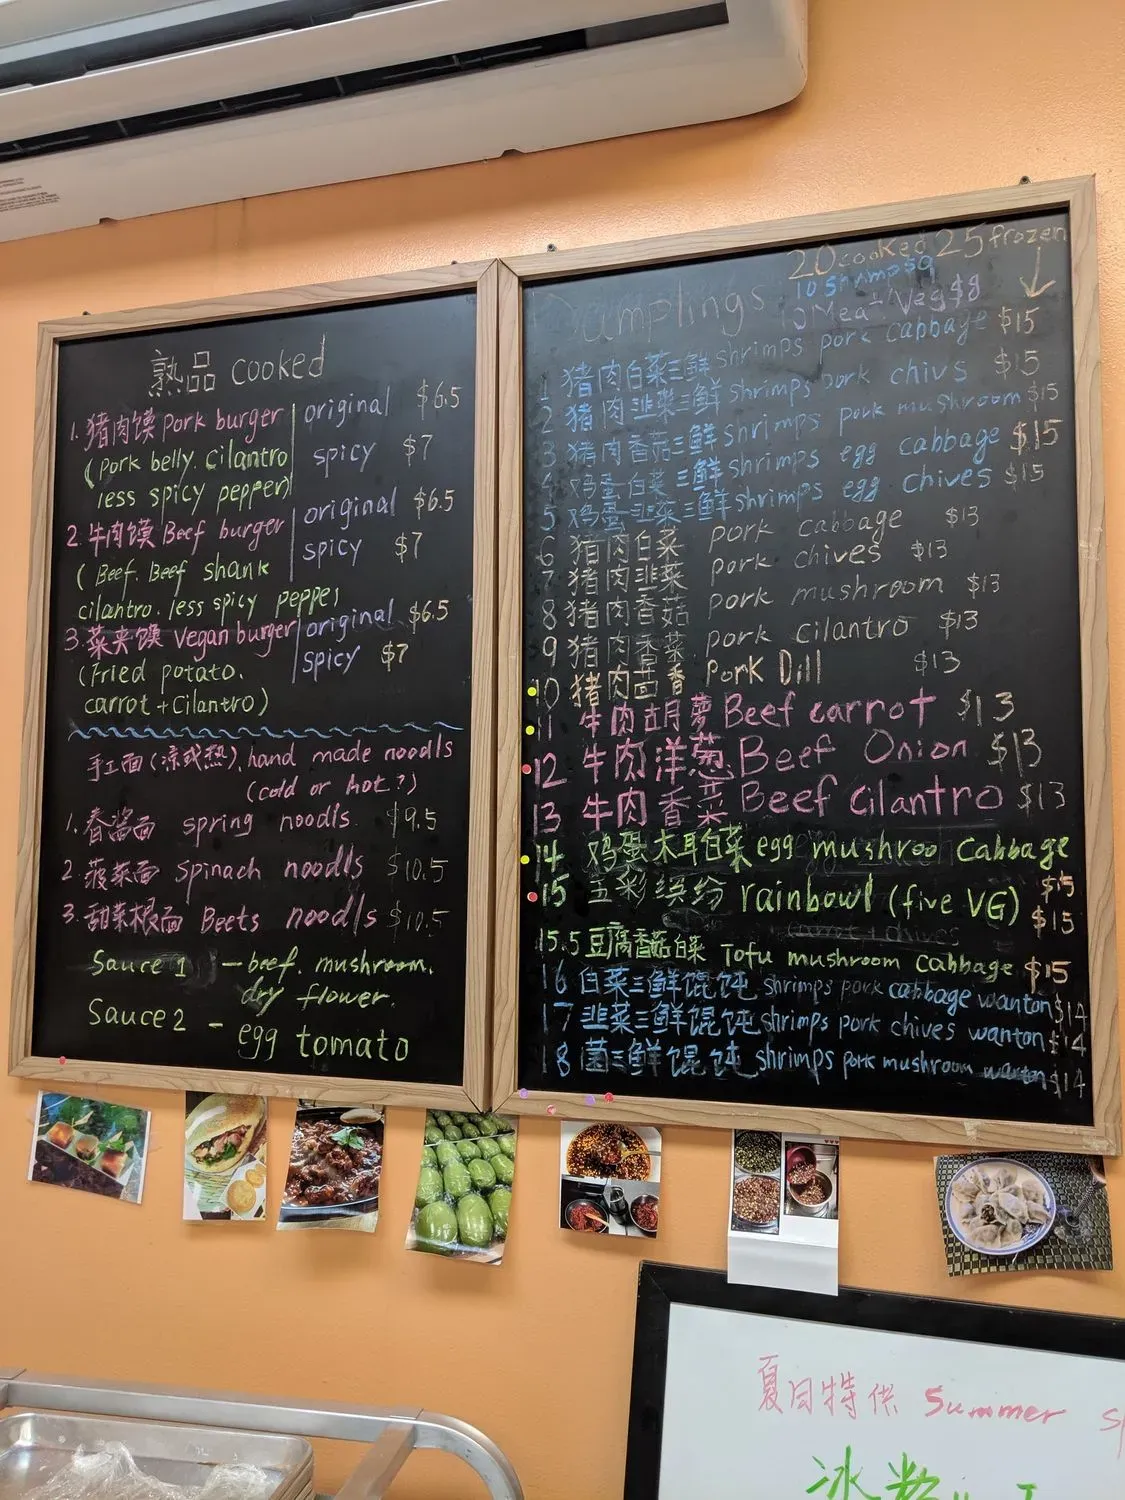 熟品 cooked
1. 猪肉馍 Pork burger original $6.5
(pork belly. cilantro spicy $7
less spicy pepper)
2. 牛肉馍 Beef burger original $6.5
(Beef. Beef shank spicy $7
cilantro. less spicy pepper
3. 菜夹馍 Vegan burger original $6.5
(Fried potato. spicy $7
carrot + Cilantro)
手工面(凉或热). hand made noodls
(cold or hot?)
1. 春酱面 spring noodls $9.5
2. 菠菜面 spinach noodls $10.5
3. 甜菜根面 Beets noodls $10.5
Sauce 1 - beef. mushroom.
dry flower.
Sauce 2 - egg tomato
20 cooked 25 frozen
Dumplings 10 shrimp $9
10 Meat Veg $8
1 猪肉白菜三鲜 shrimps pork cabbage $15
2 猪肉韭菜三鲜 shrimps pork chivs $15
3 猪肉香菇三鲜 shrimps pork mushroom $15
4 鸡蛋白菜三鲜 shrimps egg cabbage $15
5 鸡蛋韭菜三鲜 shrimps egg chives $15
6 猪肉白菜 pork cabbage $13
7 猪肉韭菜 pork chives $13
8 猪肉香菇 pork mushroom $13
9 猪肉香菜 pork cilantro $13
10 猪肉茴香 Pork Dill $13
11 牛肉胡萝 Beef carrot $13
12 牛肉洋葱 Beef Onion $13
13 牛肉香菜 Beef Cilantro $13
14 鸡蛋木耳白菜 egg mushroo Cabbage $15
15 五彩缤纷 rainbowl (five VG) $15
15.5 豆腐香菇白菜 Tofu mushroom Cabbage $15
16 白菜三鲜馄饨 shrimps pork cabbage wanton $14
17 韭菜三鲜馄饨 shrimps pork chives wanton $14
18 菌三鲜馄饨 shrimps pork mushroom wanton $14
夏日特供 Summer
冰粉